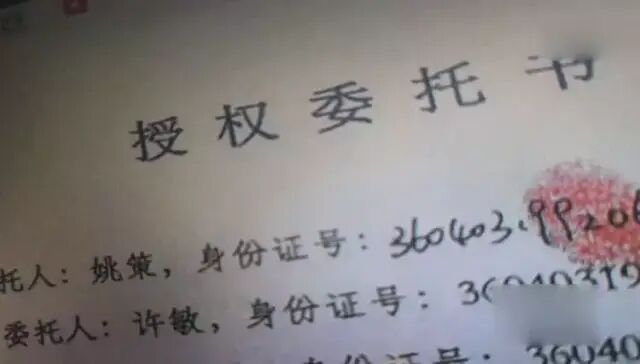 授权委托书
托人：姚策，身份证号：360403.9920
委托人：许敏，身份证号：36040319
36040